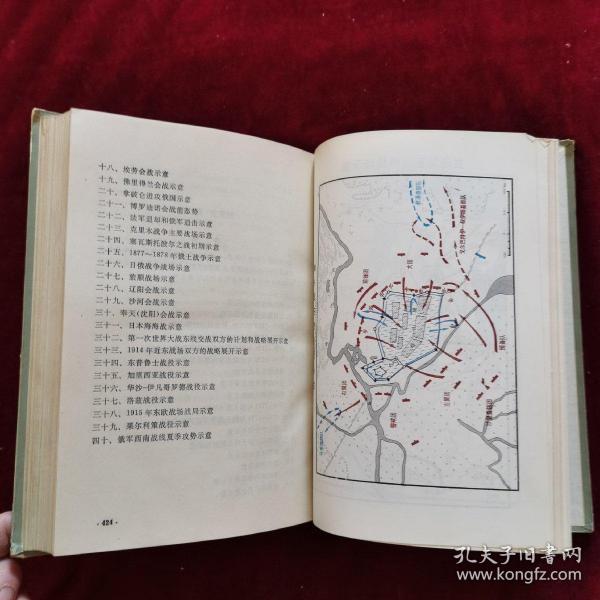 十八、埃劳会战示意
十九、佛里得兰会战示意
二十、拿破仑进攻俄国示意
二十一、博罗迪诺会战前态势
二十二、法军退却和俄军追击示意
二十三、克里木战争主要战场示意
二十四、塞瓦斯托波尔之战初期示意
二十五、1877～1878年俄土战争示意
二十六、日俄战争战场示意
二十七、旅顺战场示意
二十八、辽阳会战示意
二十九、沙河会战示意
三十、奉天(沈阳)会战示意
三十一、日本海海战示意
三十二、第一次世界大战东线交战双方的计划和战略展开示意
三十三、1914年近东战场双方的战略展开示意
三十四、东普鲁士战役示意
三十五、加里西亚战役示意
三十六、华沙-伊凡哥罗德战役示意
三十七、洛兹战役示意
三十八、1915年东欧战场战局示意
三十九、果尔利策战役示意
四十、俄军西南战线夏季攻势示意
·424·
大团
左翼团
孔夫子旧书网
www.kongfz.com